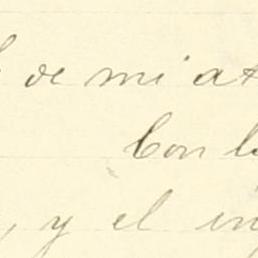 de mi at
Con l
, y el in